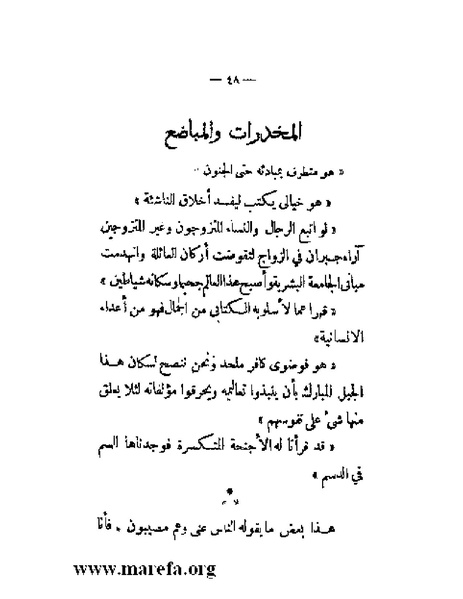 — ٤٨ —
المخدرات والمباضع
« هو متطرف بمبادئه حتى الجنون »
« هو خيالى يكتب ليفسد أخلاق الناشئة »
« لو اتبع الرجال والنساء المتزوجون وغير المتزوجين
آراء جبران في الزواج لتقوضت أركان العائلة وانهدمت
مبانى الجامعة البشرية وأصبح هذا العالم جحيما وسكانه شياطين »
« قهرا عما لأسلوبه الكتابى من الجمال فهو من أعداء
الانسانية »
« هو فوضوى كافر ملحد ونحن ننصح لسكان هذا
الجبل المبارك بأن ينبذوا تعاليمه ويحرقوا مؤلفاته لئلا يعلق
منها شئ على نفوسهم »
« قد قرأنا له الأجنحة المتكسرة فوجدناها السم
في الدسم »
هذا بعض ما يقوله الناس عنى وهم مصيبون . فأنا
www.marefa.org